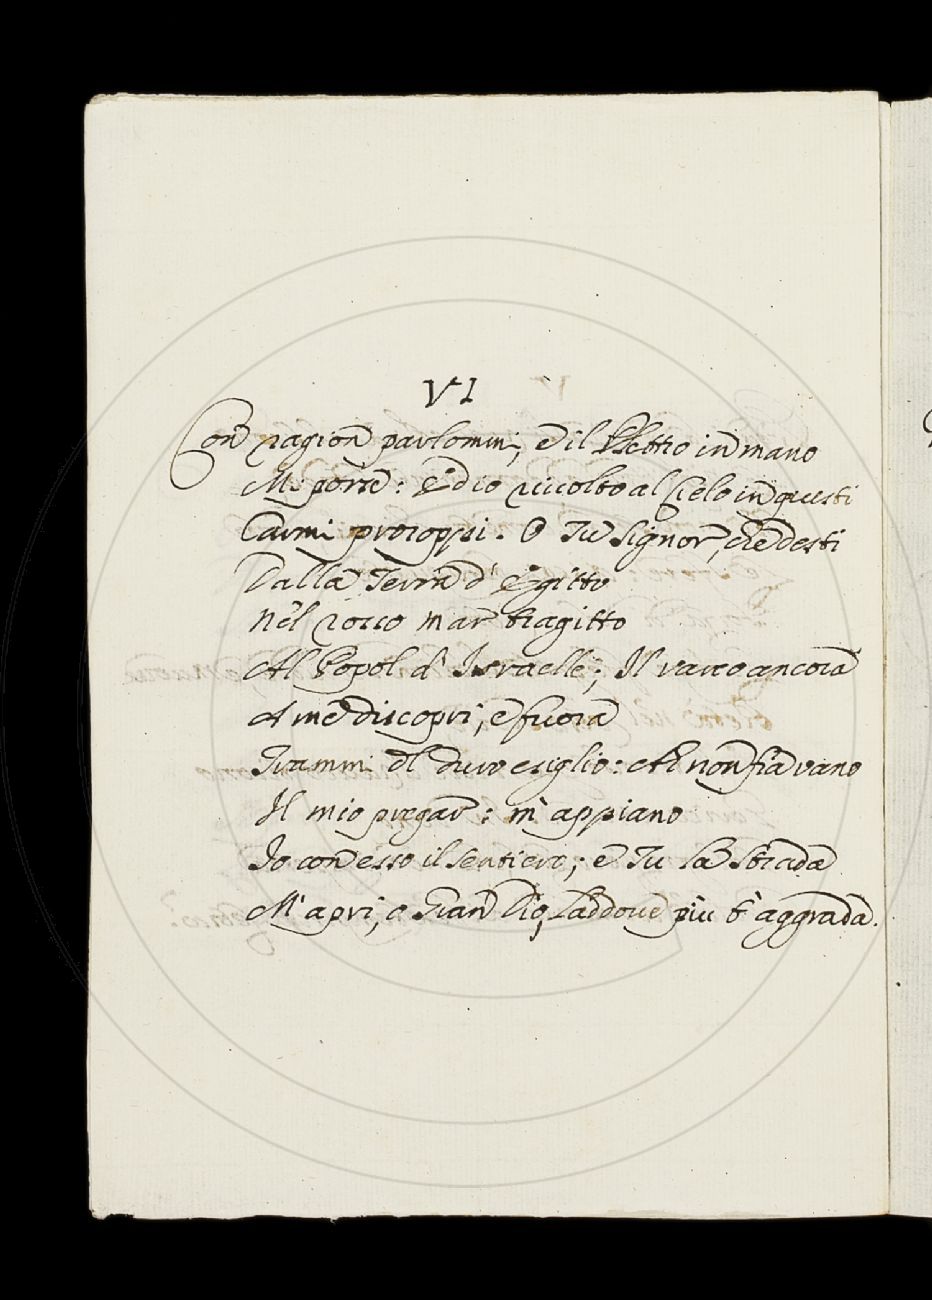 VI
Con ragion parlommi, e il Plettro in mano
Mi porse: Ed io rivolto al Cielo in questi
Carmi proroppi. O Tu Signor, che desti
Dalla Terra d' Egitto
Nel rosso mar tragitto
Al Popol d' Israelle; Il varco ancora
A me discopri, e fuora
Trammi del duro esiglio: Ah non fia vano
Il mio pregar: m' appiano
Io con esso il sentiero; e Tu la strada
M' apri, o Gran Dio, Laddove più t' aggrada.